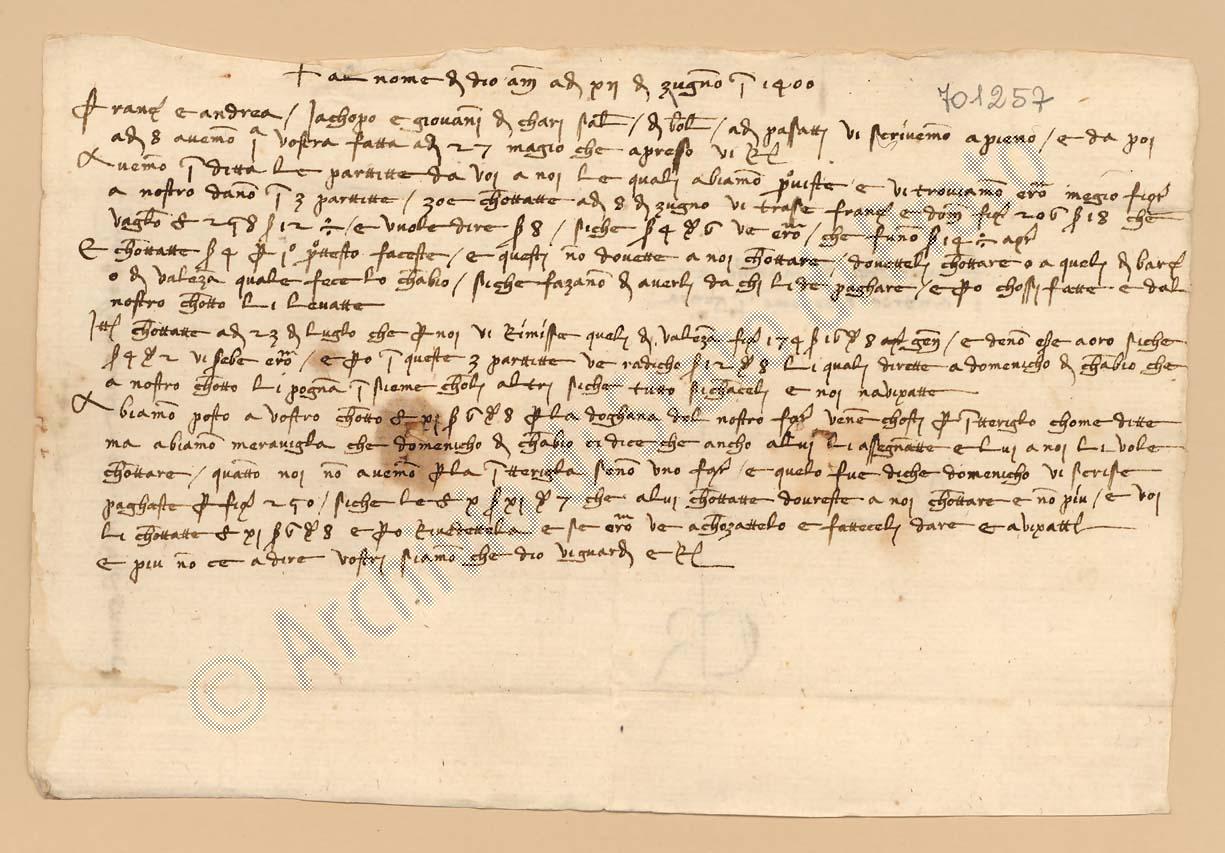 + al nome di dio am adi xii di zugno 1400
701257
Franc e andrea / Jachopo e giovani di chari sal / di bol / adi pasatti vi scrivemo a pieno / e da poi
adi 8 avemo 1ª vostra fatta adi 27 magio che apreso vi R
Avemo in ditta le partitte da voi a noi le quali abiamo proviste e vi troviamo erro megio fior
a nostro dano in 3 partitte / zoe chottatte adi 8 di zugno vi trase franc e dom fior 206 s 18 che
e vuole dire s 8 / siche s 4 d 6 ve erro / che funo s 14
E chottatte s 4 per 1º protesto faceste / e questi no dovette a noi chottare / dovetteli chottare o a queli di barc
o di valenza quale fece lo chabio / siche fazano di averli da chi li de paghare / e pero chossi fatte e dal
nostro chotto li levatte
Itt chottatte adi 23 di luglo che per noi vi Rimisse queli di valenza fior 174 s 16 d 8 / e deno ese a oro siche
s 4 d 2 vi sebe erro / e pero in queste 3 partitte ve radicho s 12 d 8 li quali dirette a domenicho di chabio che
a nostro chotto li pogna in sieme choli altri siche tutto si chaceli e noi n avixatte
Abiamo posto a vostro chotto £ xi s 6 d 8 per la doghana del nostro far vene chosti per itteriglo chome ditte
ma abiamo meravigla che domenicho di chabio ci dice che ancho a lui li assegnatte e lui a noi li vole
chottare / quatto noi no avemo per la itterigla seno uno far / e quelo fue diche domenicho vi scrise
paghaste per fior 250 / siche le £ x s xi d 7 che a lui chottatte doveste a noi chottare e no piu / e voi
li chottatte £ xi s 6 d 8 e pero Rivedettela e se erro ve achozattelo e fatteceli dare e avixatti
e piu no ce a dire vostri siamo che dio vi guardi e R
© Archivio di Stato di Prato